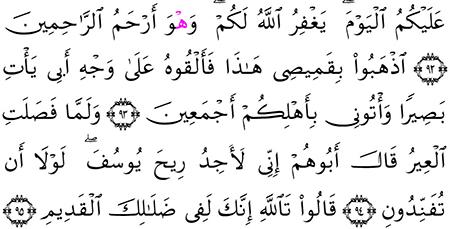 عَلَيْكُمُ ٱلْيَوْمَ ۖ يَغْفِرُ ٱللَّهُ لَكُمْ ۖ وَهْوَ أَرْحَمُ ٱلرَّٰحِمِينَ
۝٩٢ ٱذْهَبُوا۟ بِقَمِيصِى هَٰذَا فَأَلْقُوهُ عَلَىٰ وَجْهِ أَبِى يَأْتِ
بَصِيرًا وَأْتُونِى بِأَهْلِكُمْ أَجْمَعِينَ ۝٩٣ وَلَمَّا فَصَلَتِ
ٱلْعِيرُ قَالَ أَبُوهُمْ إِنِّى لَأَجِدُ رِيحَ يُوسُفَ ۖ لَوْلَا أَن
تُفَنِّدُونِ ۝٩٤ قَالُوا۟ تَٱللَّهِ إِنَّكَ لَفِى ضَلَٰلِكَ ٱلْقَدِيمِ ۝٩٥